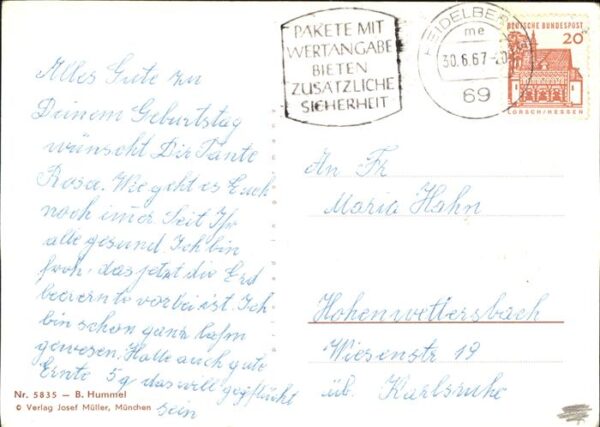 PAKETE MIT
WERTANGABE
BIETEN
ZUSÄTZLICHE
SICHERHEIT
HEIDELBERG
me
30.6.67-20
69
DEUTSCHE BUNDESPOST
20
LORSCH/HESSEN
Alles Gute zu
Deinem Geburtstag
wünscht Dir Tante
Rosa. Wie geht es Euch
noch imer Seit Ihr
alle gesund. Ich bin
froh, das jetzt die Erd
beerernte vorbei ist. Ich
bin schon ganz lahm
gewesen. Hatte auch gute
Ernte 5 das will gepflückt
sein
An Fr
Maria Hahn
Hohenwettersbach
Wiesenstr 19
üb. Karlsruhe
Nr. 5835 — B. Hummel
© Verlag Josef Müller, München